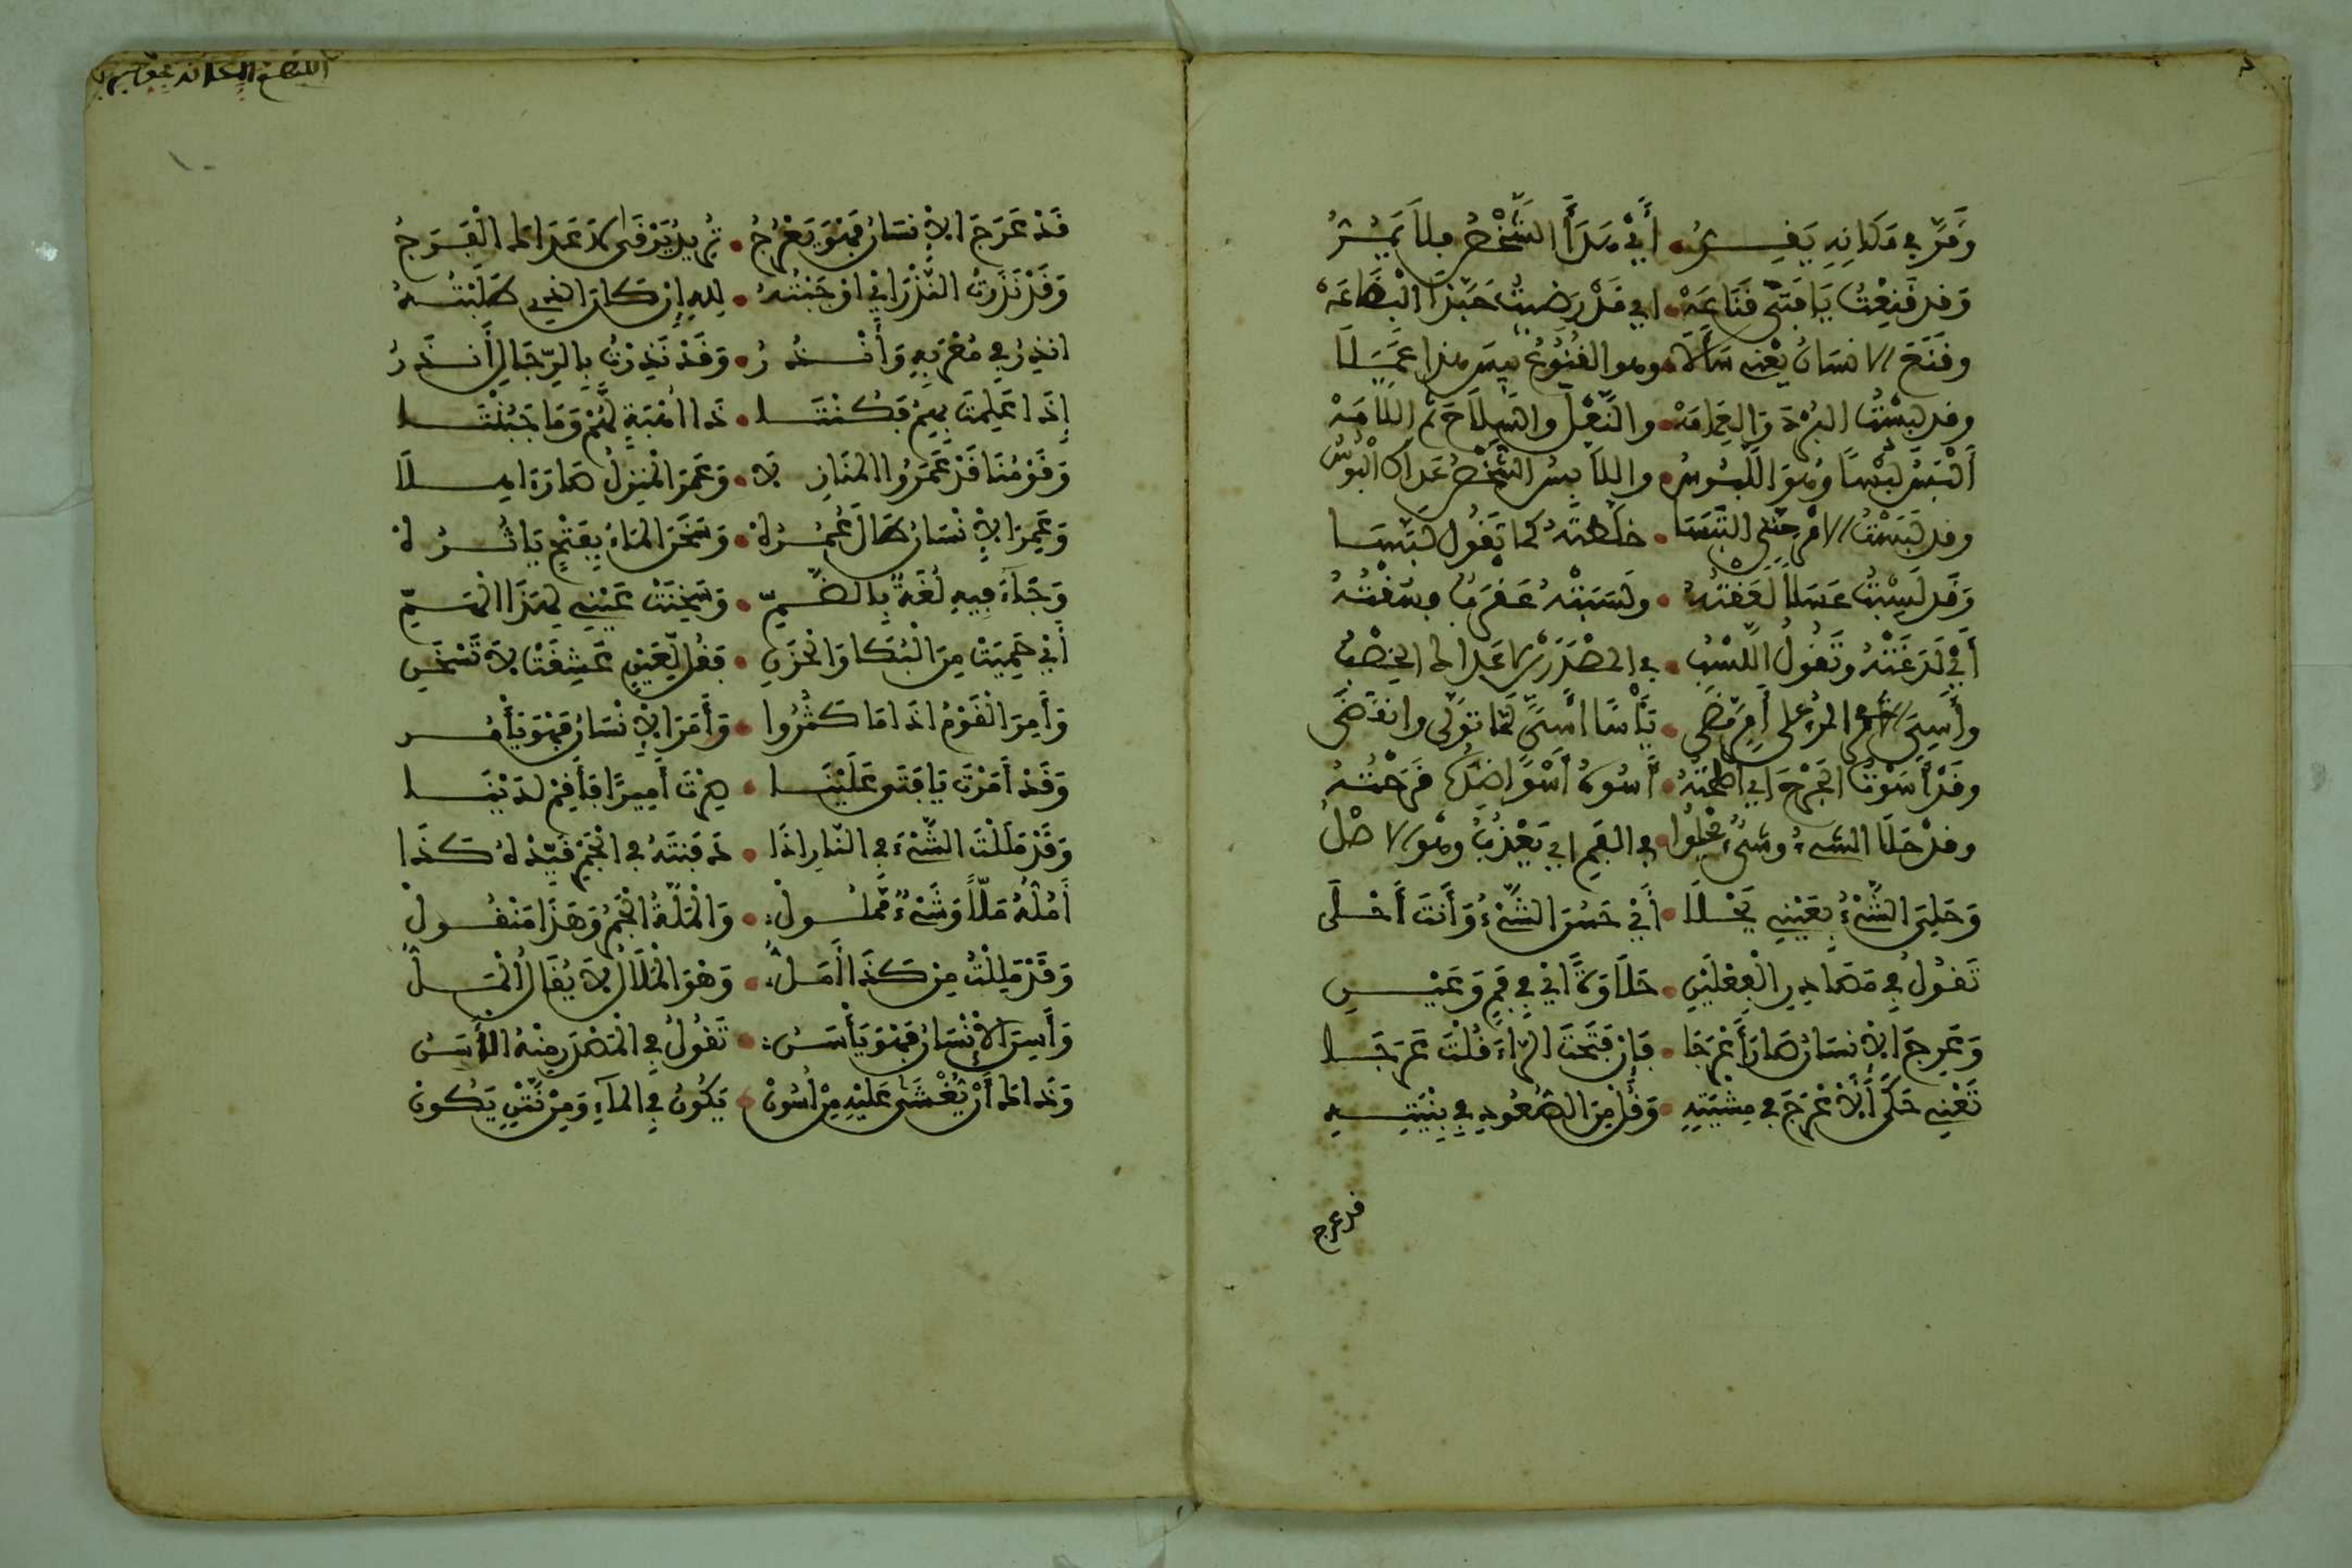 وَقَرَّ فِي مَكَانِهِ يَقِرُّ • أَيْ هَدَأَ الشَّخْصُ فلَا يَمُرُّ
وَقد قَنِعْتُ يَا فَتَى قَنَاعَهْ • اي قَدْ رَضِيتُ حَبَّذَا الْبضَاعَهْ
وقَنَعَ الانسَانُ يَعْنِي سَأَلَا • وهو القُنُوعُ ليسَ هذا عَمَلَا
وقد لَبِسْتُ البُرْدَ وَالعِمَامَهْ • والنَّعْلَ والسِّلَاحَ ثم اللَّامَهْ
أَلْبَسُ لُبْسًا وَهوَ اللَّبُوسُ • واللَّابِسُ الشَّخْصُ عَدَاكَ الْبُوسُ
وقد لَبَسْتُ الامْرَ حَتَّى الْتَبَسَا • خلَطتُهُ كما تَقُولُ لَبَّسَا
وَقد لَسِبْتُ عَسَلًا لَعَقْتُهُ • ولَسَبَتْهُ عَقْرَبٌ وسُقْتُهُ
أَيْ لَدَغَتْهُ وتَقُولُ اللَّسْبُ • في المصْدَرَيْنِ مَا عَدَاكَ الخِصْبُ
وأَسِيَ المرءُ على أَمْرٍ مَضَى • يَأْسَى أَسًى لَمَّا تَوَلَّى وانقَضَى
وقَدْ أَسَوْتُ الجُرْحَ اي أَصْلَحْتُهُ • آسُوهُ أَسْوًا
وقدْ حَلَا الشيءُ وشَيْءٌ يَحْلُو • في الفَمِ اي يَعْذُبُ وهْو الاصْلُ
وَحَلِيَ الشَّيْءُ بِعَيْنِي يَحْلَا • أَيْ حَسُنَ الشَّيْءُ وَأَنتَ أَحْلَى
تَقُولُ فِي مَصَادِرِ الْفِعْلَيْنِ • حَلَاوَةً ايْ فِي فَمٍ وَعَيْنِ
وَعَرِجَ الْانسَانُ صَارَ أَعْرَجَا • فَإِنْ فَتَحْتَ الرَّاءَ قُلْتَ عَرَجَا
تَعْنِي حَكَى الْأَعْرَجَ فِي مِشْيَتِهِ • وَقُلْ مِنَ الصُّعُودِ فِي بِنْيَتِهِ
قد عرج
قَدْ عَرَجَ الْإِنسَانُ فَهْوَ يَعْرُجُ • يُرِيدُ يَرْقَى لَا عَدَاكَ الْفَرَجُ
وَقَدْ نَذَرْتُ النَّذْرَ ايْ اوْجَبْتُهُ • لِلهِ إِنْ كَانَ الذِي طَلَبْتُهُ
انذِرُ فِي مُعْرَبِهِ وَأَنْذُرُ • وَقَدْ نَذِرْتُ بِالرِّجَالِ أَنذَرُ
إِذَا عَلِمْتَ بِهِمْ فَكُنْتَا • ذَا أُهْبَةٍ لَهُمْ وَمَا جَبُنْتَا
وَقَوْمُنَا قَدْ عَمَرُوا الْمَنَازِلَا • وَعَمَرَ الْمَنزِلُ صَارَ ءَاهِلَا
وَعَمِرَ الْإِنْسَانُ طَالَ عُمُرُهْ • وَسَخَنَ الْمَاءُ بِفَتْحٍ يَاثُرُهْ
وَجَاءَ فِيهِ لُغَةٌ بِالضَّمِّ • وَسَخِنَتْ عَيْنِي لِهَذَا الْهَمِّ
أَيْ حَمِيَتْ مِنَ الْبُكَا وَالْحَزَنِ • فَقُلْ لِعَيْنٍ عَشِقَتْ لَا تَسْخَنِ
وَأَمِرَ الْقَوْمُ اذَا مَا كَثُرُوا • وَأَمَرَ الْإِنْسَانُ فَهْوَ يَأْمُرُ
وَقَدْ أَمَرْتَ يَا فَتَى عَلَيْنَا • صِرْتَ أَمِيرًا فَأَقِمْ لَدَيْنَا
وَقَدْ مَلَلْتَ الشَّيْءَ فِي النَّارِ اذَا • دَفَنتَهُ فِي الْجَمْرِ قَيِّدْهُ كَذَا
أَمُلُّهُ مَلًّا وَشَيْءٌ مَّمْلُولْ • وَالْمَلَّةُ الْجَمْرُ وَهَذَا مَنْقُولْ
وَقَدْ مَلِلْتُ مِن كَذَا أَمَلُّ • وَهْوَ الْمَلَالُ لَا يُقَالُ الْمَلُّ
وَأَسِنَ الْإِنْسَانُ فَهْوَ يَأْسَنُ • تَقُولُ فِي الْمَصْدَرِ مِنْهُ الْأَسَنُ
وَذَاكَ أَنْ يُغْشَى عَلَيْهِ مِنْ أُسُونْ • يَكُونُ فِي الْمَاءِ وَمِنْ نَتْنٍ يَكُونْ